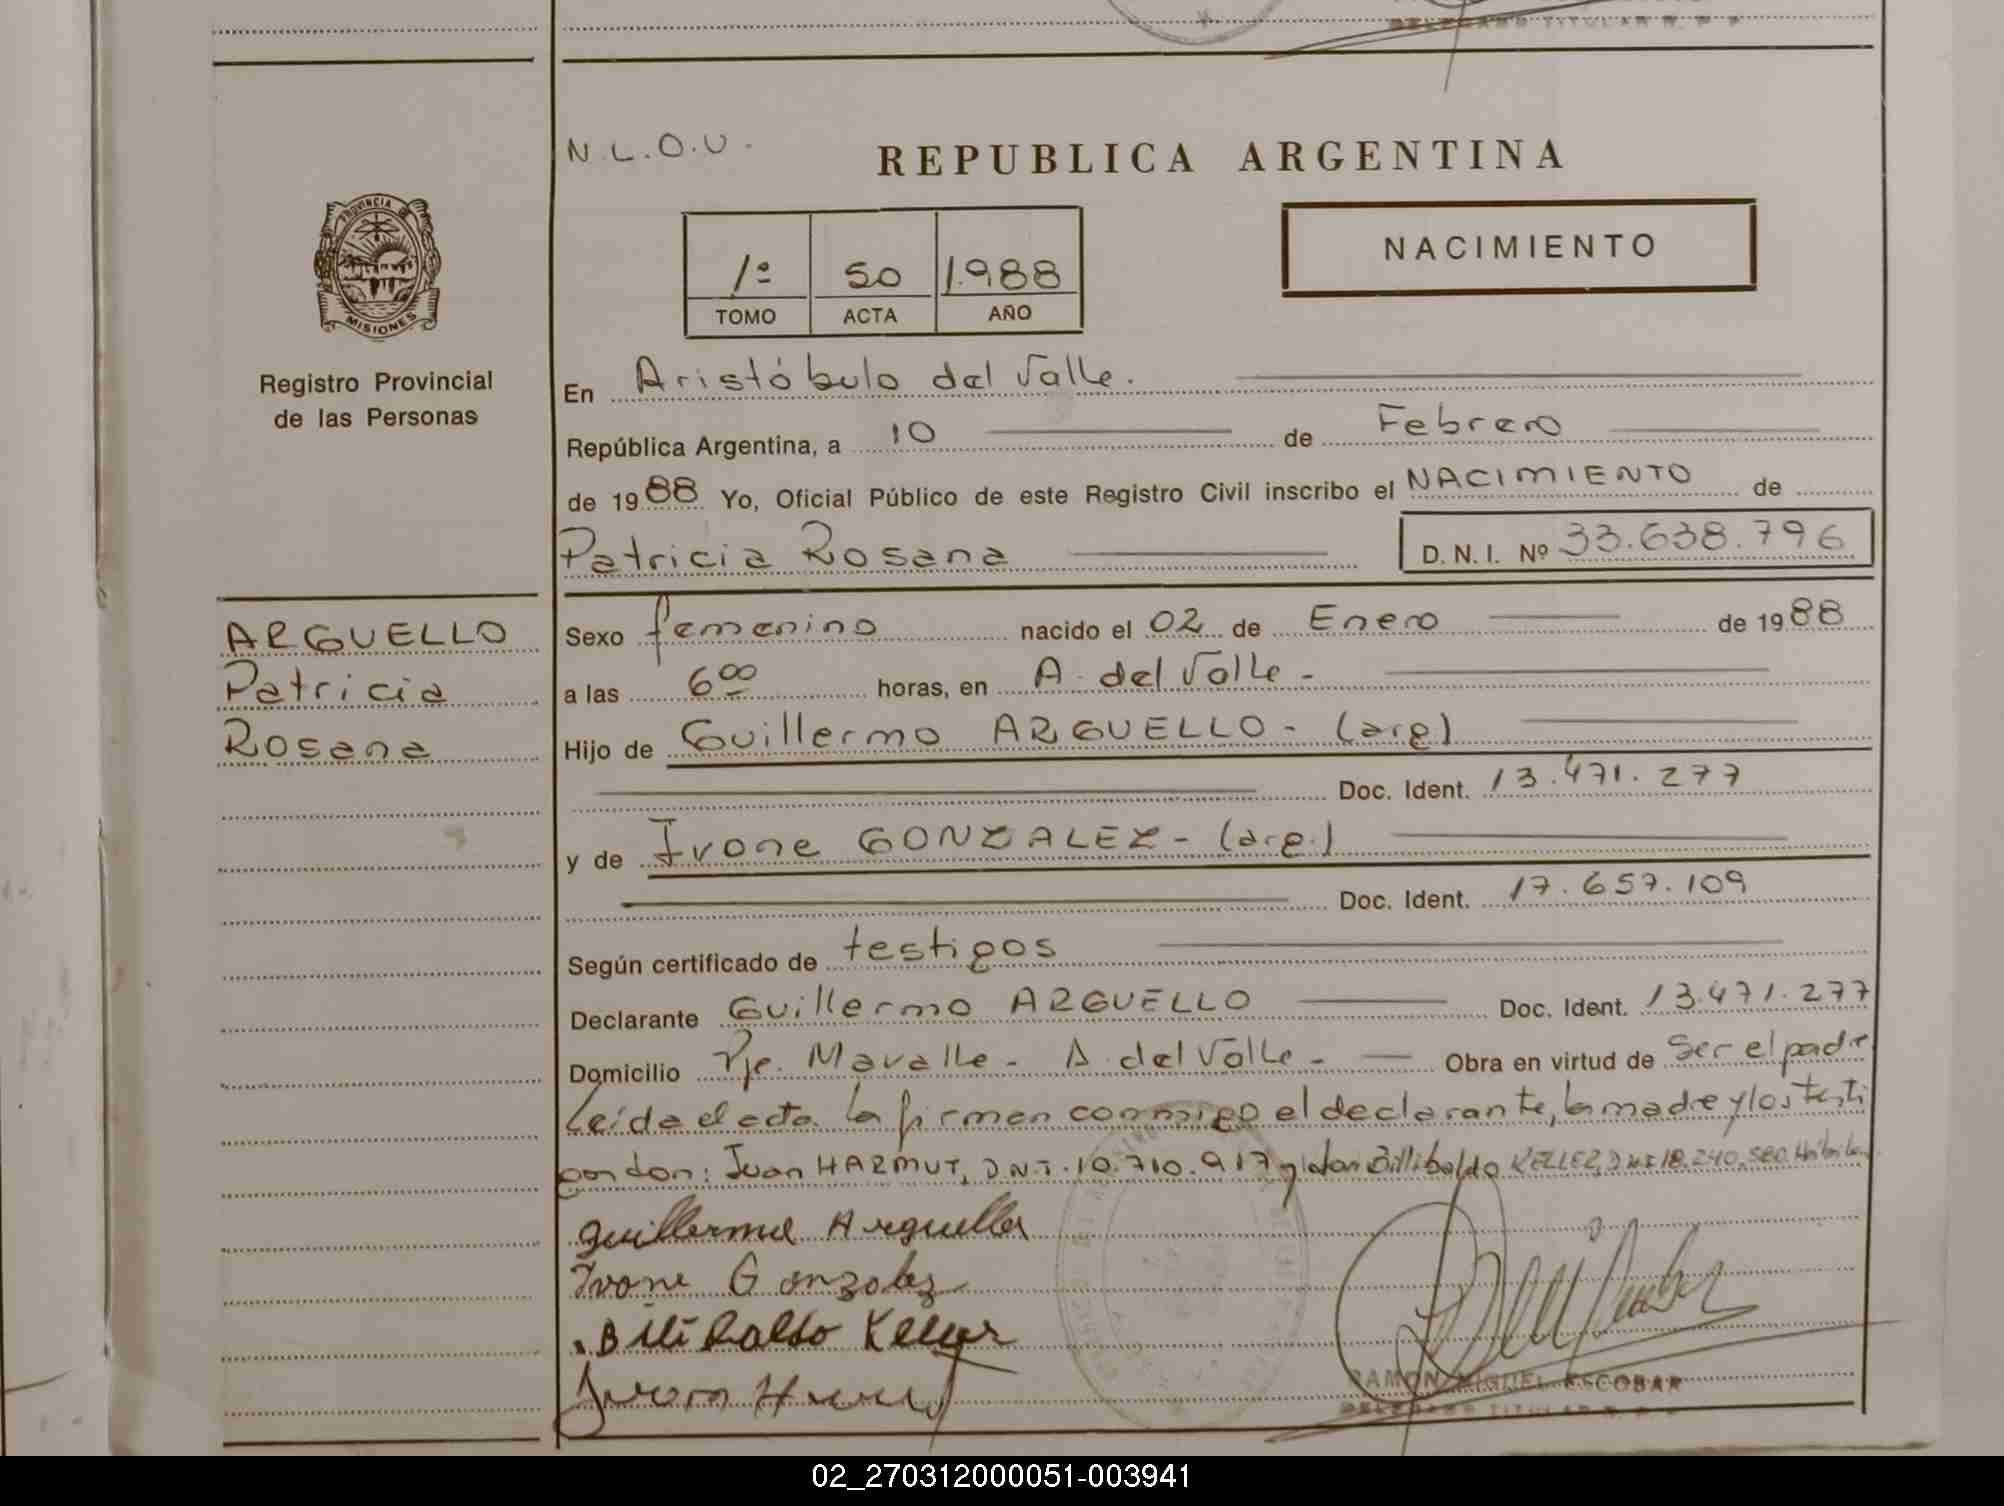 DELEGADO TITULAR R. P. P.
N.L.O.U.
REPUBLICA ARGENTINA
PROVINCIA DE
MISIONES
NACIMIENTO
1º 50 1.988
TOMO ACTA AÑO
Registro Provincial
de las Personas
En Aristóbulo del Valle.
República Argentina, a 10 de Febrero
de 1988 Yo, Oficial Público de este Registro Civil inscribo el NACIMIENTO de
Patricia Rosana D. N. I. Nº 33.638.796
ARGUELLO
Patricia
Rosana
Sexo femenino nacido el 02 de Enero de 1988
a las 6 00 horas, en A. del Valle -
Hijo de Guillermo ARGUELLO - (arg)
Doc. Ident. 13.471.277
y de Ivone GONZALEZ - (arg.)
Doc. Ident. 17.657.109
Según certificado de testigos
Declarante Guillermo ARGUELLO Doc. Ident. 13.471.277
Domicilio Pje. Mavalle - A. del Valle - Obra en virtud de Ser el padre
Leída el acta la firman conmigo el declarante, la madre y los testi
gos don: Juan HARMUT, D.N.I. 10.710.917 y don Billibaldo KELLER, D.N.I 18.240.580
Guillermo Arguello
Ivone Gonzalez
Bilibaldo Keller
Juan
RAMON MIGUEL ESCOBAR
DELEGADO TITULAR R. P. P.
02_270312000051-003941